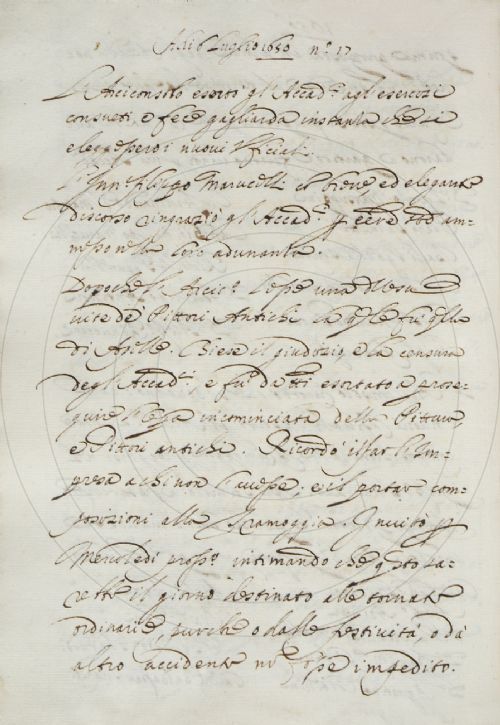 Adì 6 Luglio 1650 n.° 17
L'Arciconsolo esortò gl'Accad.ci agl'esercizi
consueti, e fece gagliarda instanza che si
eleggessero i nuovi Ufficiali.
Filippo Marucelli cō breve ed elegante
discorso ringraziò gl'Accad.ci p aver am-
messo nella loro adunanza.
Dopo che l'Arcic.° lesse una delle
vite de Pittori Antichi la qle fu qlla
di Apelle. Chiese il giudizio e la censura
degl'Accad.ci e fu da tti esortato a prose-
guire l'opa incominciata della Pittura,
e Pittori antichi. Ricordò il far l'Im-
presa a chi non l'avesse, e il portar com-
posizioni alla Tramoggia. Invitò p
Mercoledì pross.° intimando che qsto sa-
rebbe il giorno destinato alle tornate
ordinarie, purche o dalle festività, o da
altro accidente nō fosse impedito.